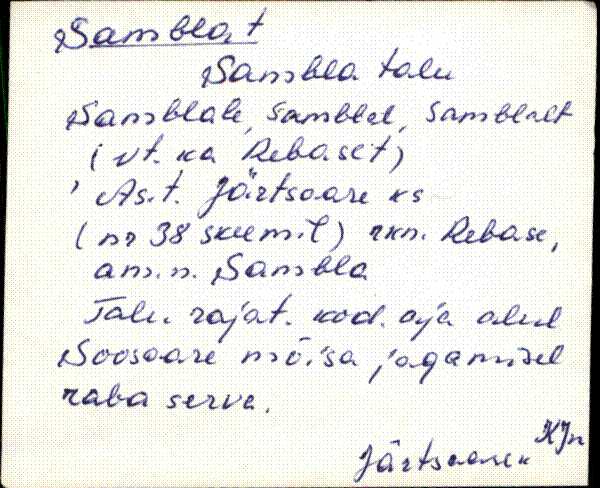 Sambla t
Sambla talu
Samblale, Samblal, Samblalt
(vt. ka Rebaset)
As.t. Järtsaare ks
(nr 38 skeemil) rkn. Rebase,
am.n. Sambla
Talu rajat. kod. aja alul
Soosaare mõisa jagamisel
raba serva.
KJn
Järtsaare k